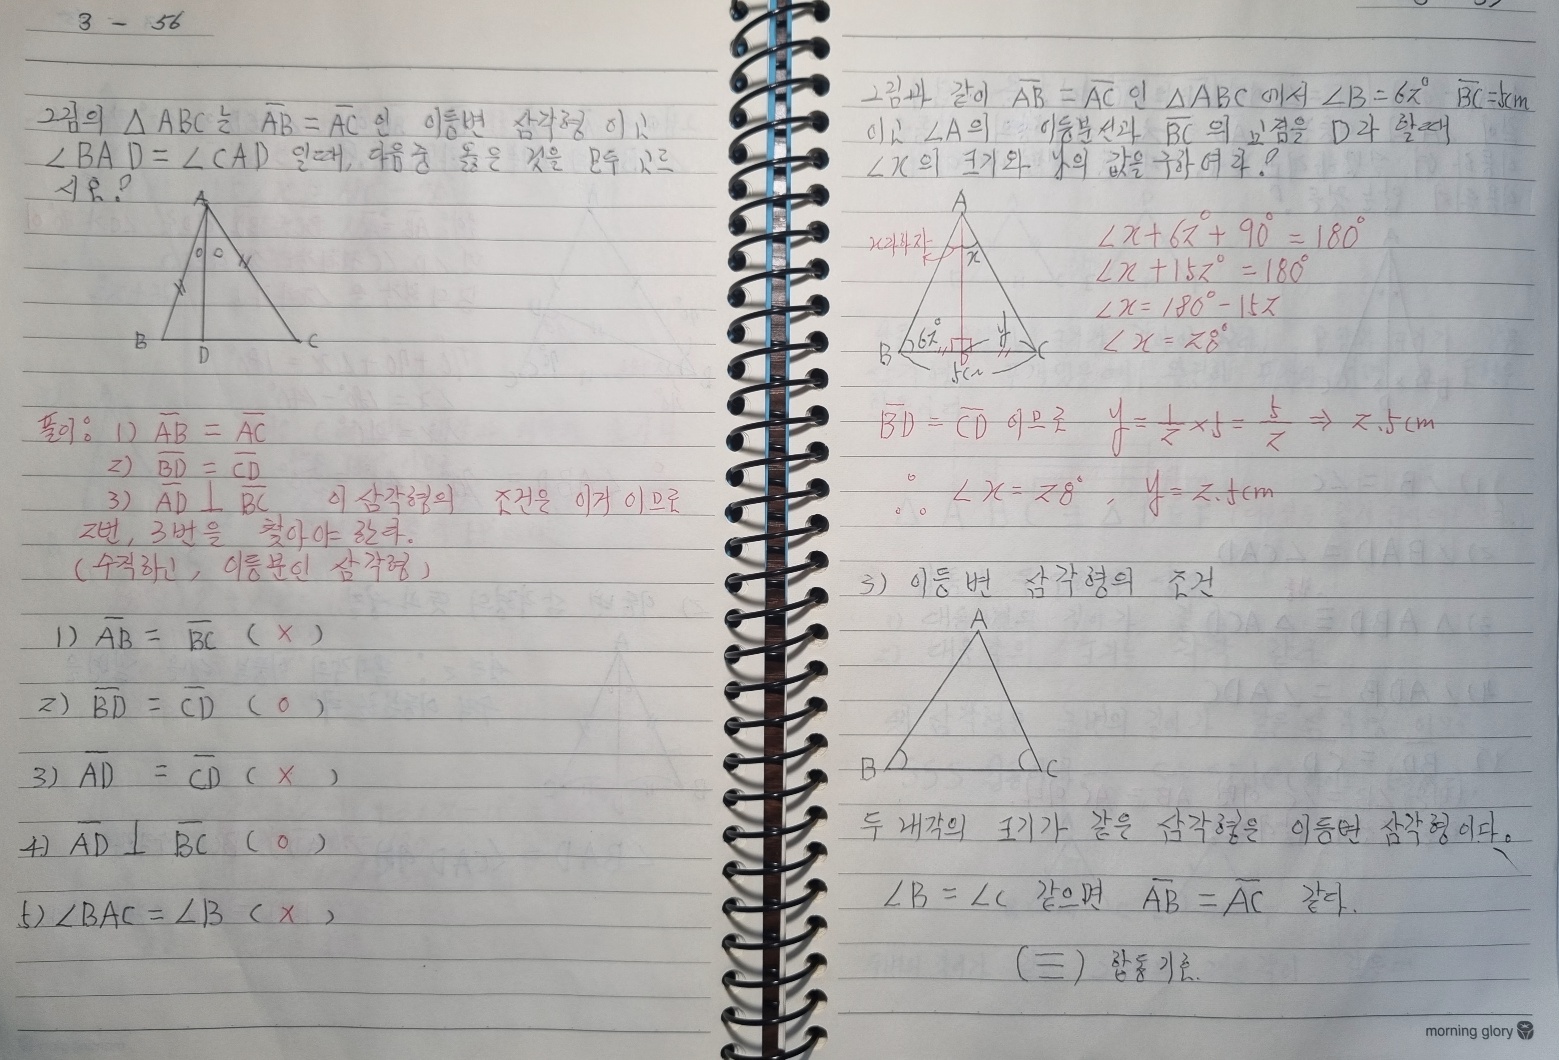 3 - 56
그림의 △ABC는 AB = AC 인 이등변 삼각형 이고
∠BAD = ∠CAD 일때, 다음중 옳은 것을 모두 고르
시오?
A
B
D
C
풀이: 1) AB = AC
2) BD = CD
3) AD ⊥ BC 이 삼각형의 조건은 이거 이므로
2번, 3번을 찾아야 한다.
(수직하고, 이등분인 삼각형)
1) AB = BC ( x )
2) BD = CD ( o )
3) AD = CD ( x )
4) AD ⊥ BC ( o )
5) ∠BAC = ∠B ( x )
그림과 같이 AB = AC 인 △ABC 에서 ∠B = 62° BC = 5cm
이고 ∠A의 이등분선과 BC의 교점을 D라 할때
∠x의 크기와 y의 값을 구하여라?
A
x라하자
x
B
62°
D
y
C
5cm
∠x + 62° + 90° = 180°
∠x + 152° = 180°
∠x = 180° - 152
∠x = 28°
BD = CD 이므로 y = 1/2 × 5 = 5/2 ⇒ 2.5cm
∴ ∠x = 28°, y = 2.5cm
3) 이등변 삼각형의 조건
A
B
C
두 내각의 크기가 같은 삼각형은 이등변 삼각형이다.
∠B = ∠C 같으면 AB = AC 같다.
(≡) 합동기호.
morning glory